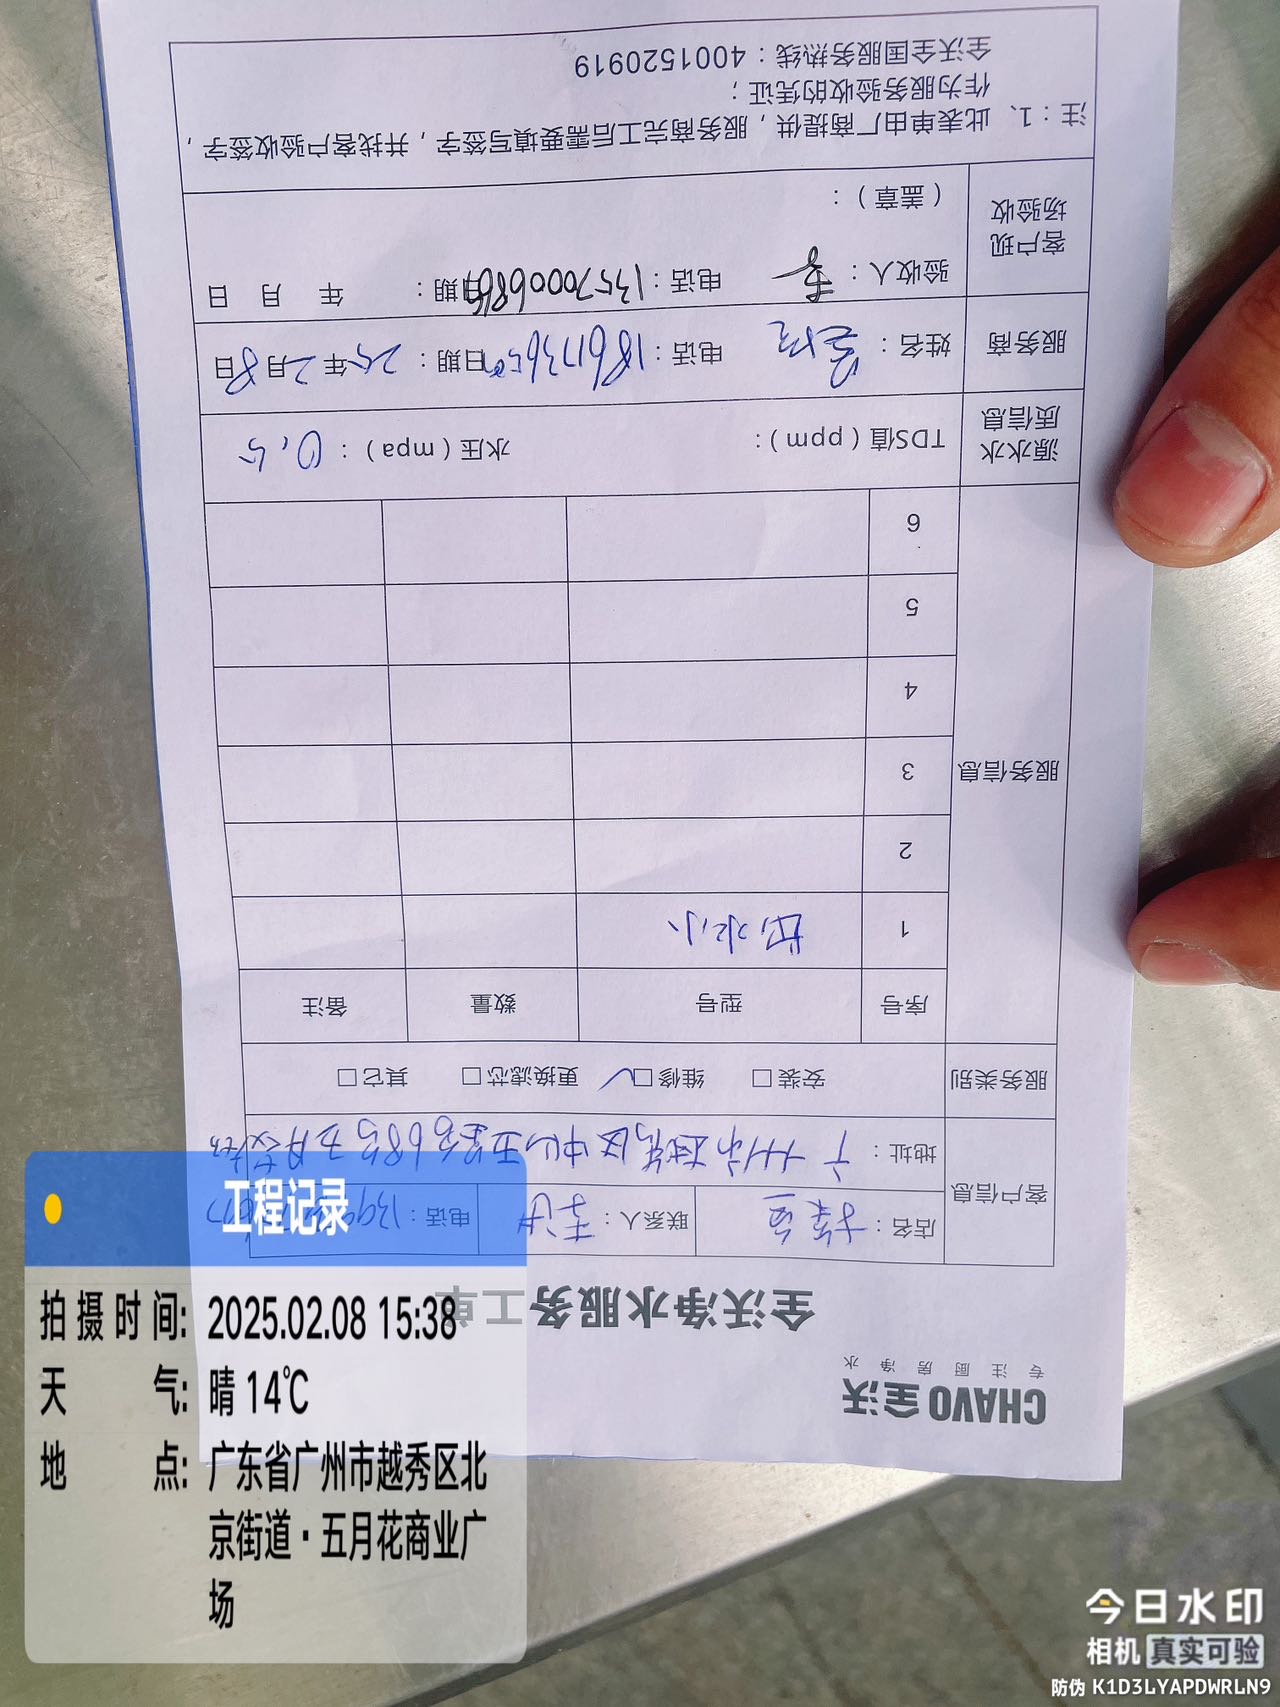 CHAVO全沃
专注厨房净水
全沃净水服务工单
客户信息
店名： 联系人：李 电话：
地址：广州市越秀区中山五路68号五月花
服务类别
安装□ 维修□✓ 更换滤芯□ 其它□
服务信息
序号 型号 数量 备注
1 出水小
2
3
4
5
6
源水水质信息
TDS值（ppm）： 水压（mpa）：0.5
服务商
姓名： 电话： 日期：25年2月8日
客户现场验收
验收人：李 电话： 日期： 年 月 日
（盖章）：
注：1、此表单由厂商提供，服务商完工后需要填写签字，并找客户验收签字，
作为服务验收的凭证；
全沃全国服务热线：4001520919
工程记录
拍摄时间：2025.02.08 15:38
天气：晴 14℃
地点：广东省广州市越秀区北
京街道·五月花商业广
场
今日水印
相机 真实可验
防伪 K1D3LYAPDWRLN9